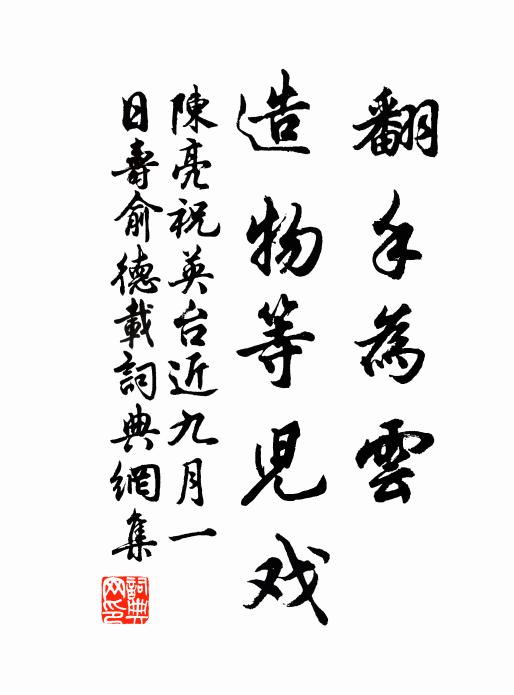 翻手為雲
造物等兒戏
陳亮祝英台近九月一
日壽俞德載詞典網集
詞典网印